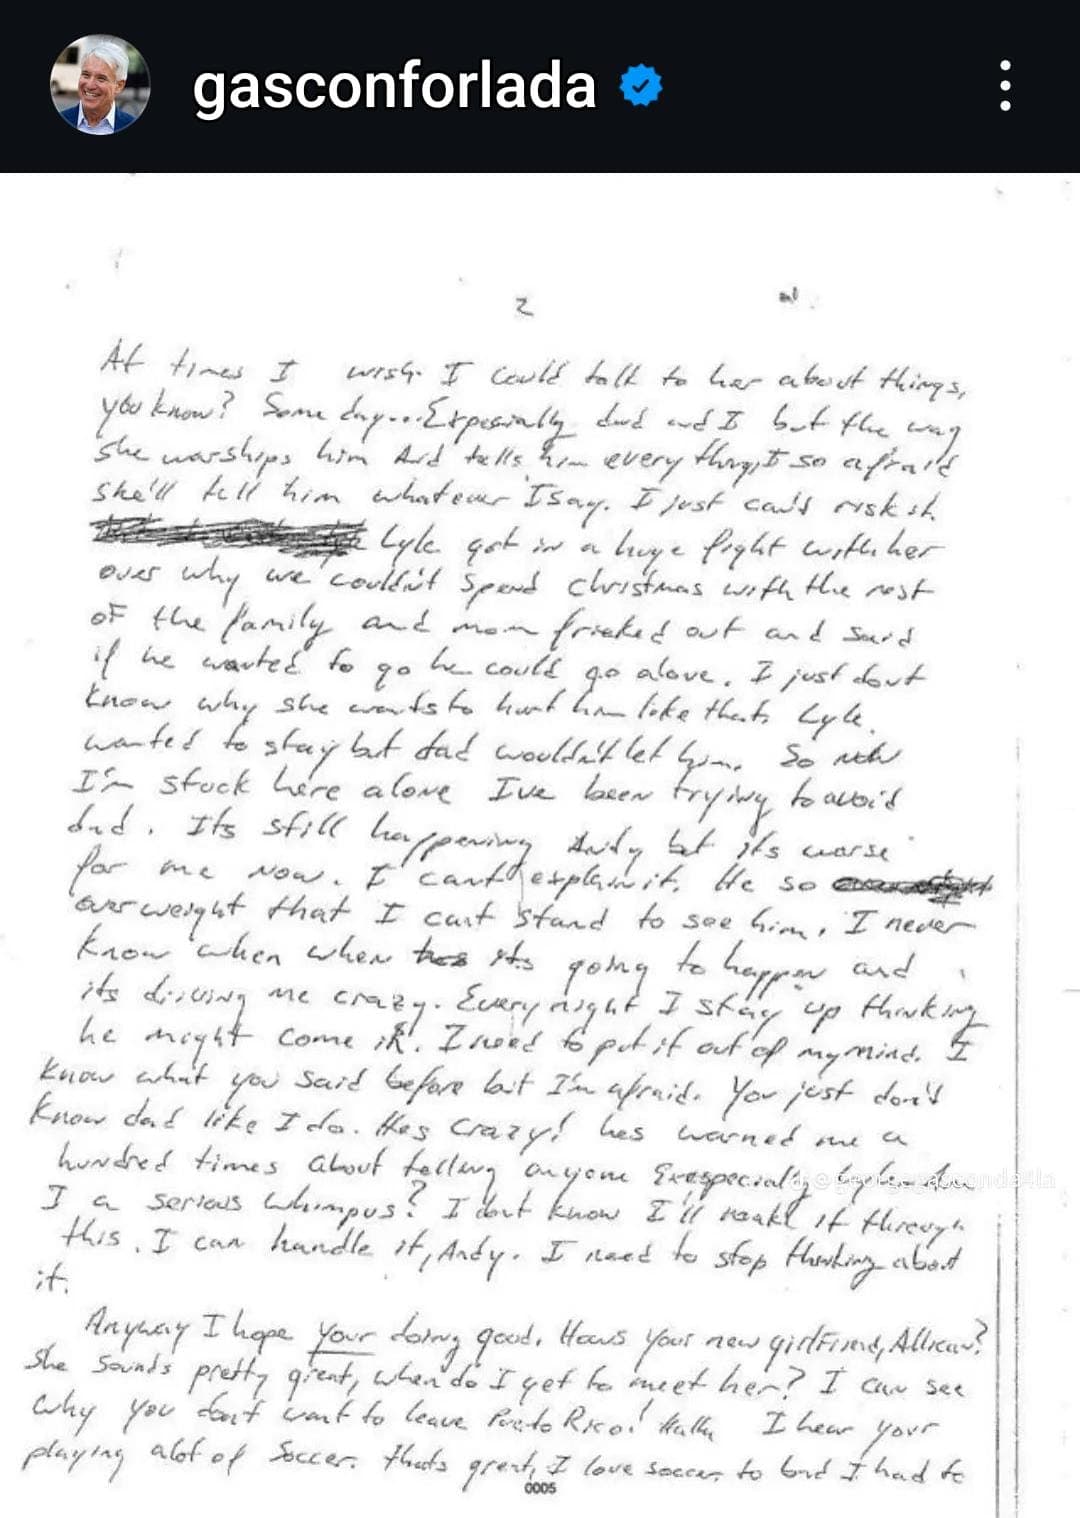 gasconforlada
2
At times I wish I could talk to her about things,
you know? Some day...Expecially dad and I but the way
she worships him And tells him everything, I so afraid
she'll tell him whatever I say. I just can't risk it.
Lyle got in a huge fight with her
over why we couldn't spend christmas with the rest
of the family and mom frieked out and said
if he wanted to go he could go alone. I just dont
know why she wants to hurt him like that. Lyle
wanted to stay but dad wouldn't let him. So now
I'm stuck here alone I've been trying to avoid
dad. Its still happening Andy but its worse
for me now. I cant explain it. He so
overweight that I cant stand to see him. I never
know when when its going to happen and
its driving me crazy. Every night I stay up thinking
he might come in. I need to put it out of my mind. I
know what you said before but I'm afraid. You just don't
know dad like I do. Hes crazy! hes warned me a
hundred times about telling anyone Exespecially Lyle. Am
I a serious whimpus? I dont know I'll make it through
this. I can handle it, Andy. I need to stop thinking about
it.
Anyway I hope your doing good. Hows your new girlfriend, Allican?
She sounds pretty great, when do I get to meet her? I can see
why you dont want to leave Puerto Rico! I hear your
playing alot of Soccer. thats great, I love soccer, to bad I had to
0005